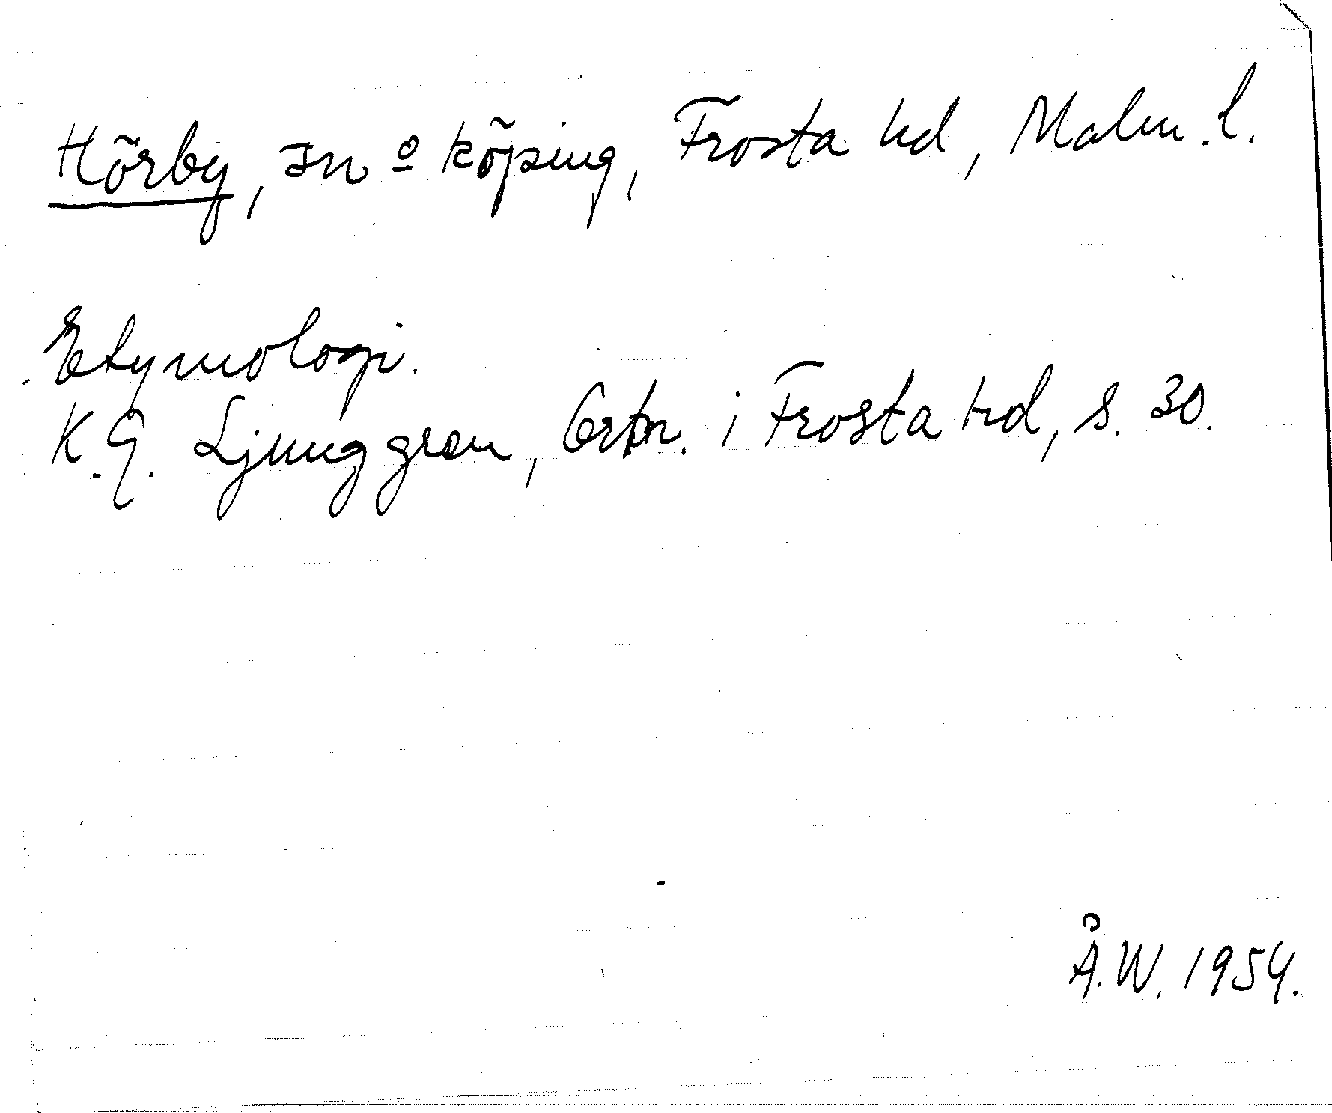 Hörby, sn o köping, Frosta hd, Malm. l.
Etymologi.
K.G. Ljunggren, Ortn. i Frosta hd, s. 30.
Å.W. 1954.